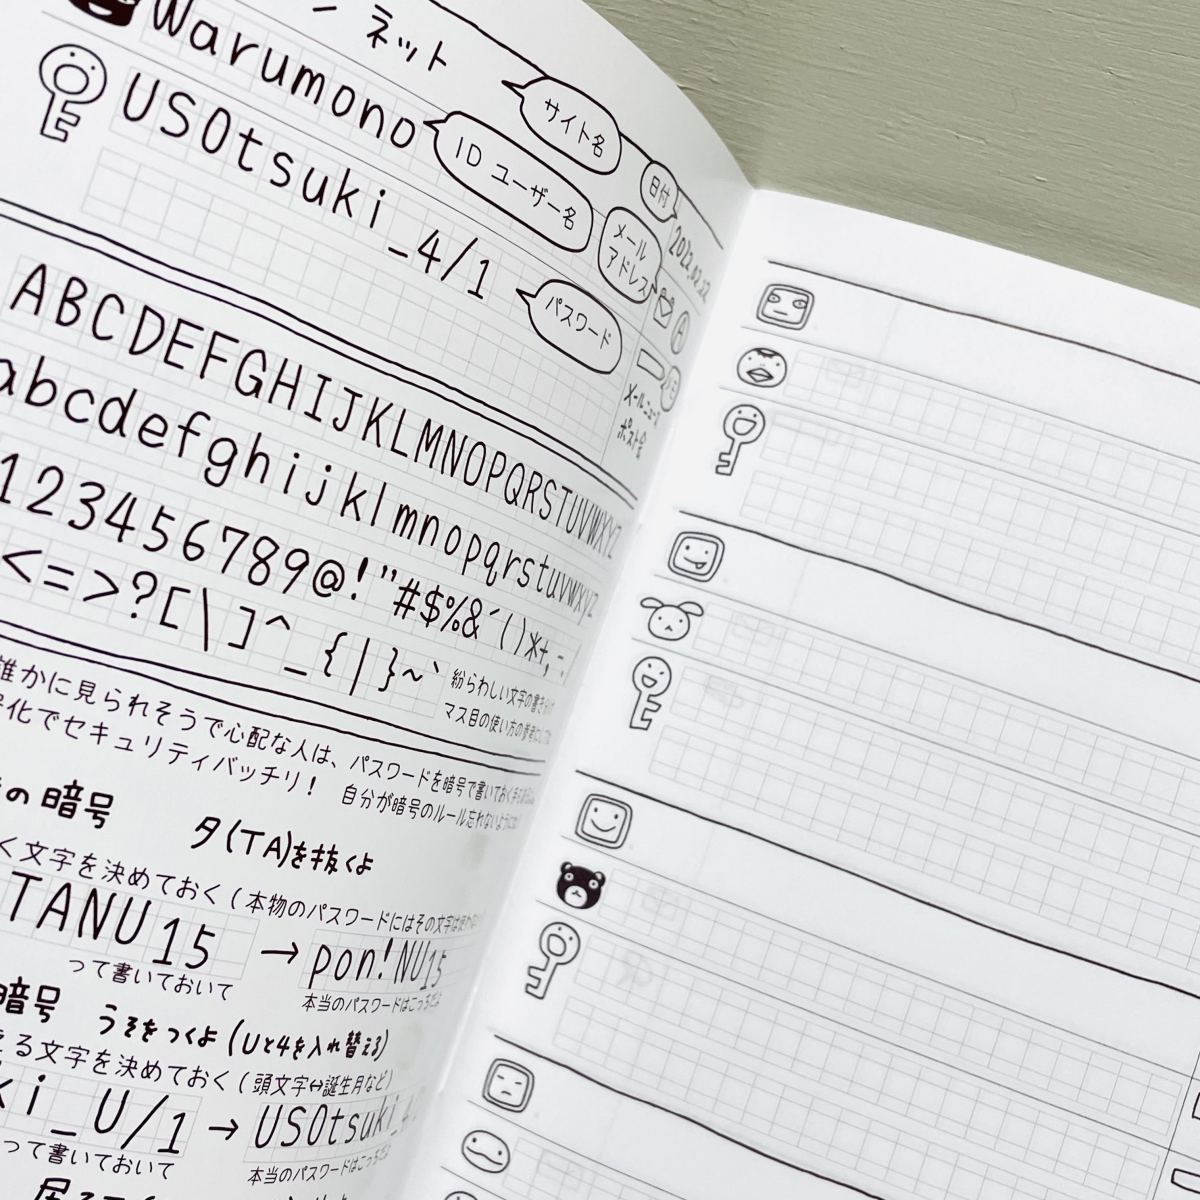 ネット
サイト名
Warumono
ID ユーザー名
日付
USOtsuki_4/1
メール
アドレス
2022.02.22
パスワード
ABCDEFGHIJKLMNOPQRSTUVWXYZ
abcdefghijklmnopqrstuvwxyz
1234567890@!"#$%&´()*+,-:
<=>?[\]^_{|}~`
紛らわしい文字の書き
マス目の使い方の参考にして
誰かに見られそうで心配な人は、パスワードを暗号で書いておく
号化でセキュリティバッチリ! 自分が暗号のルール忘れないように
の暗号 タ(TA)を抜くよ
く文字を決めておく(本物のパスワードにはその文字は
TANU15 → pon!NU15
って書いておいて 本当のパスワードはこっちだよ
暗号 うそをつくよ(Uと4を入れ替える)
える文字を決めておく(頭文字⇔誕生月など)
ki_U/1 → USOtsuki_
って書いておいて 本当のパスワードはこっちだよ